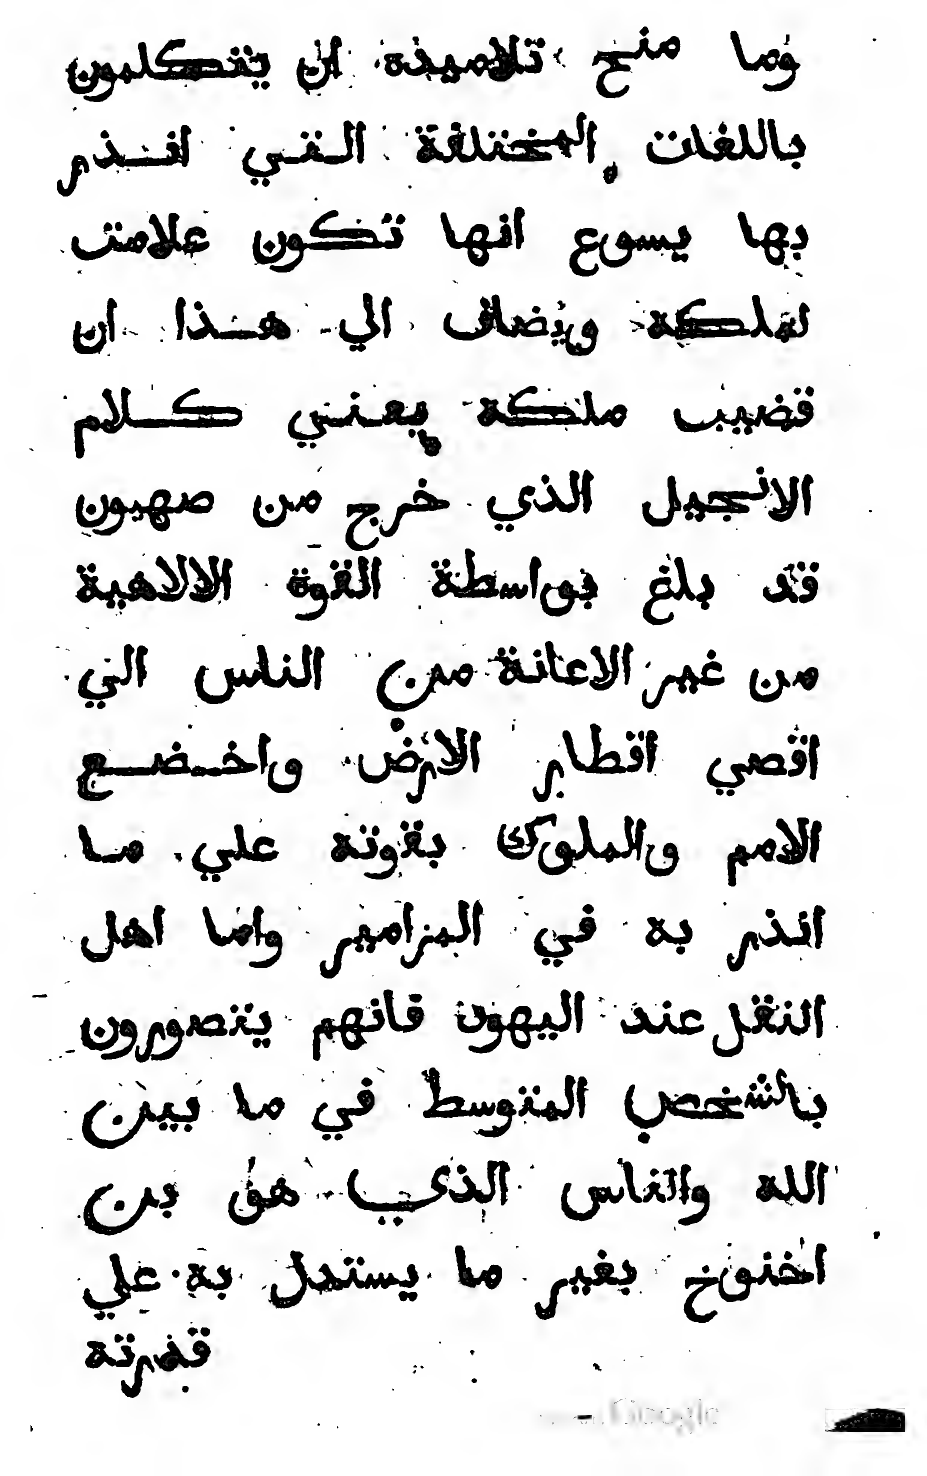 وما منح تلاميذه ان يتكلمون
باللغات المختلفة التي انذر
بها يسوع انها تكون علامت
لملكه ويضاف الي هذا ان
قضيب ملكه يعني كلام
الانجيل الذي خرج من صهيون
قد بلغ بواسطة القوة الالاهية
من غير الاعانة من الناس الي
اقصي اقطار الارض واخضع
الامم والملوك بقوته علي ما
انذر به في المزامير واما اهل
النقل عند اليهود فانهم يتصورون
بالشخص المتوسط في ما بين
الله والناس الذي هو بن
اخنوخ بغير ما يستدل به علي
قدرته
Google